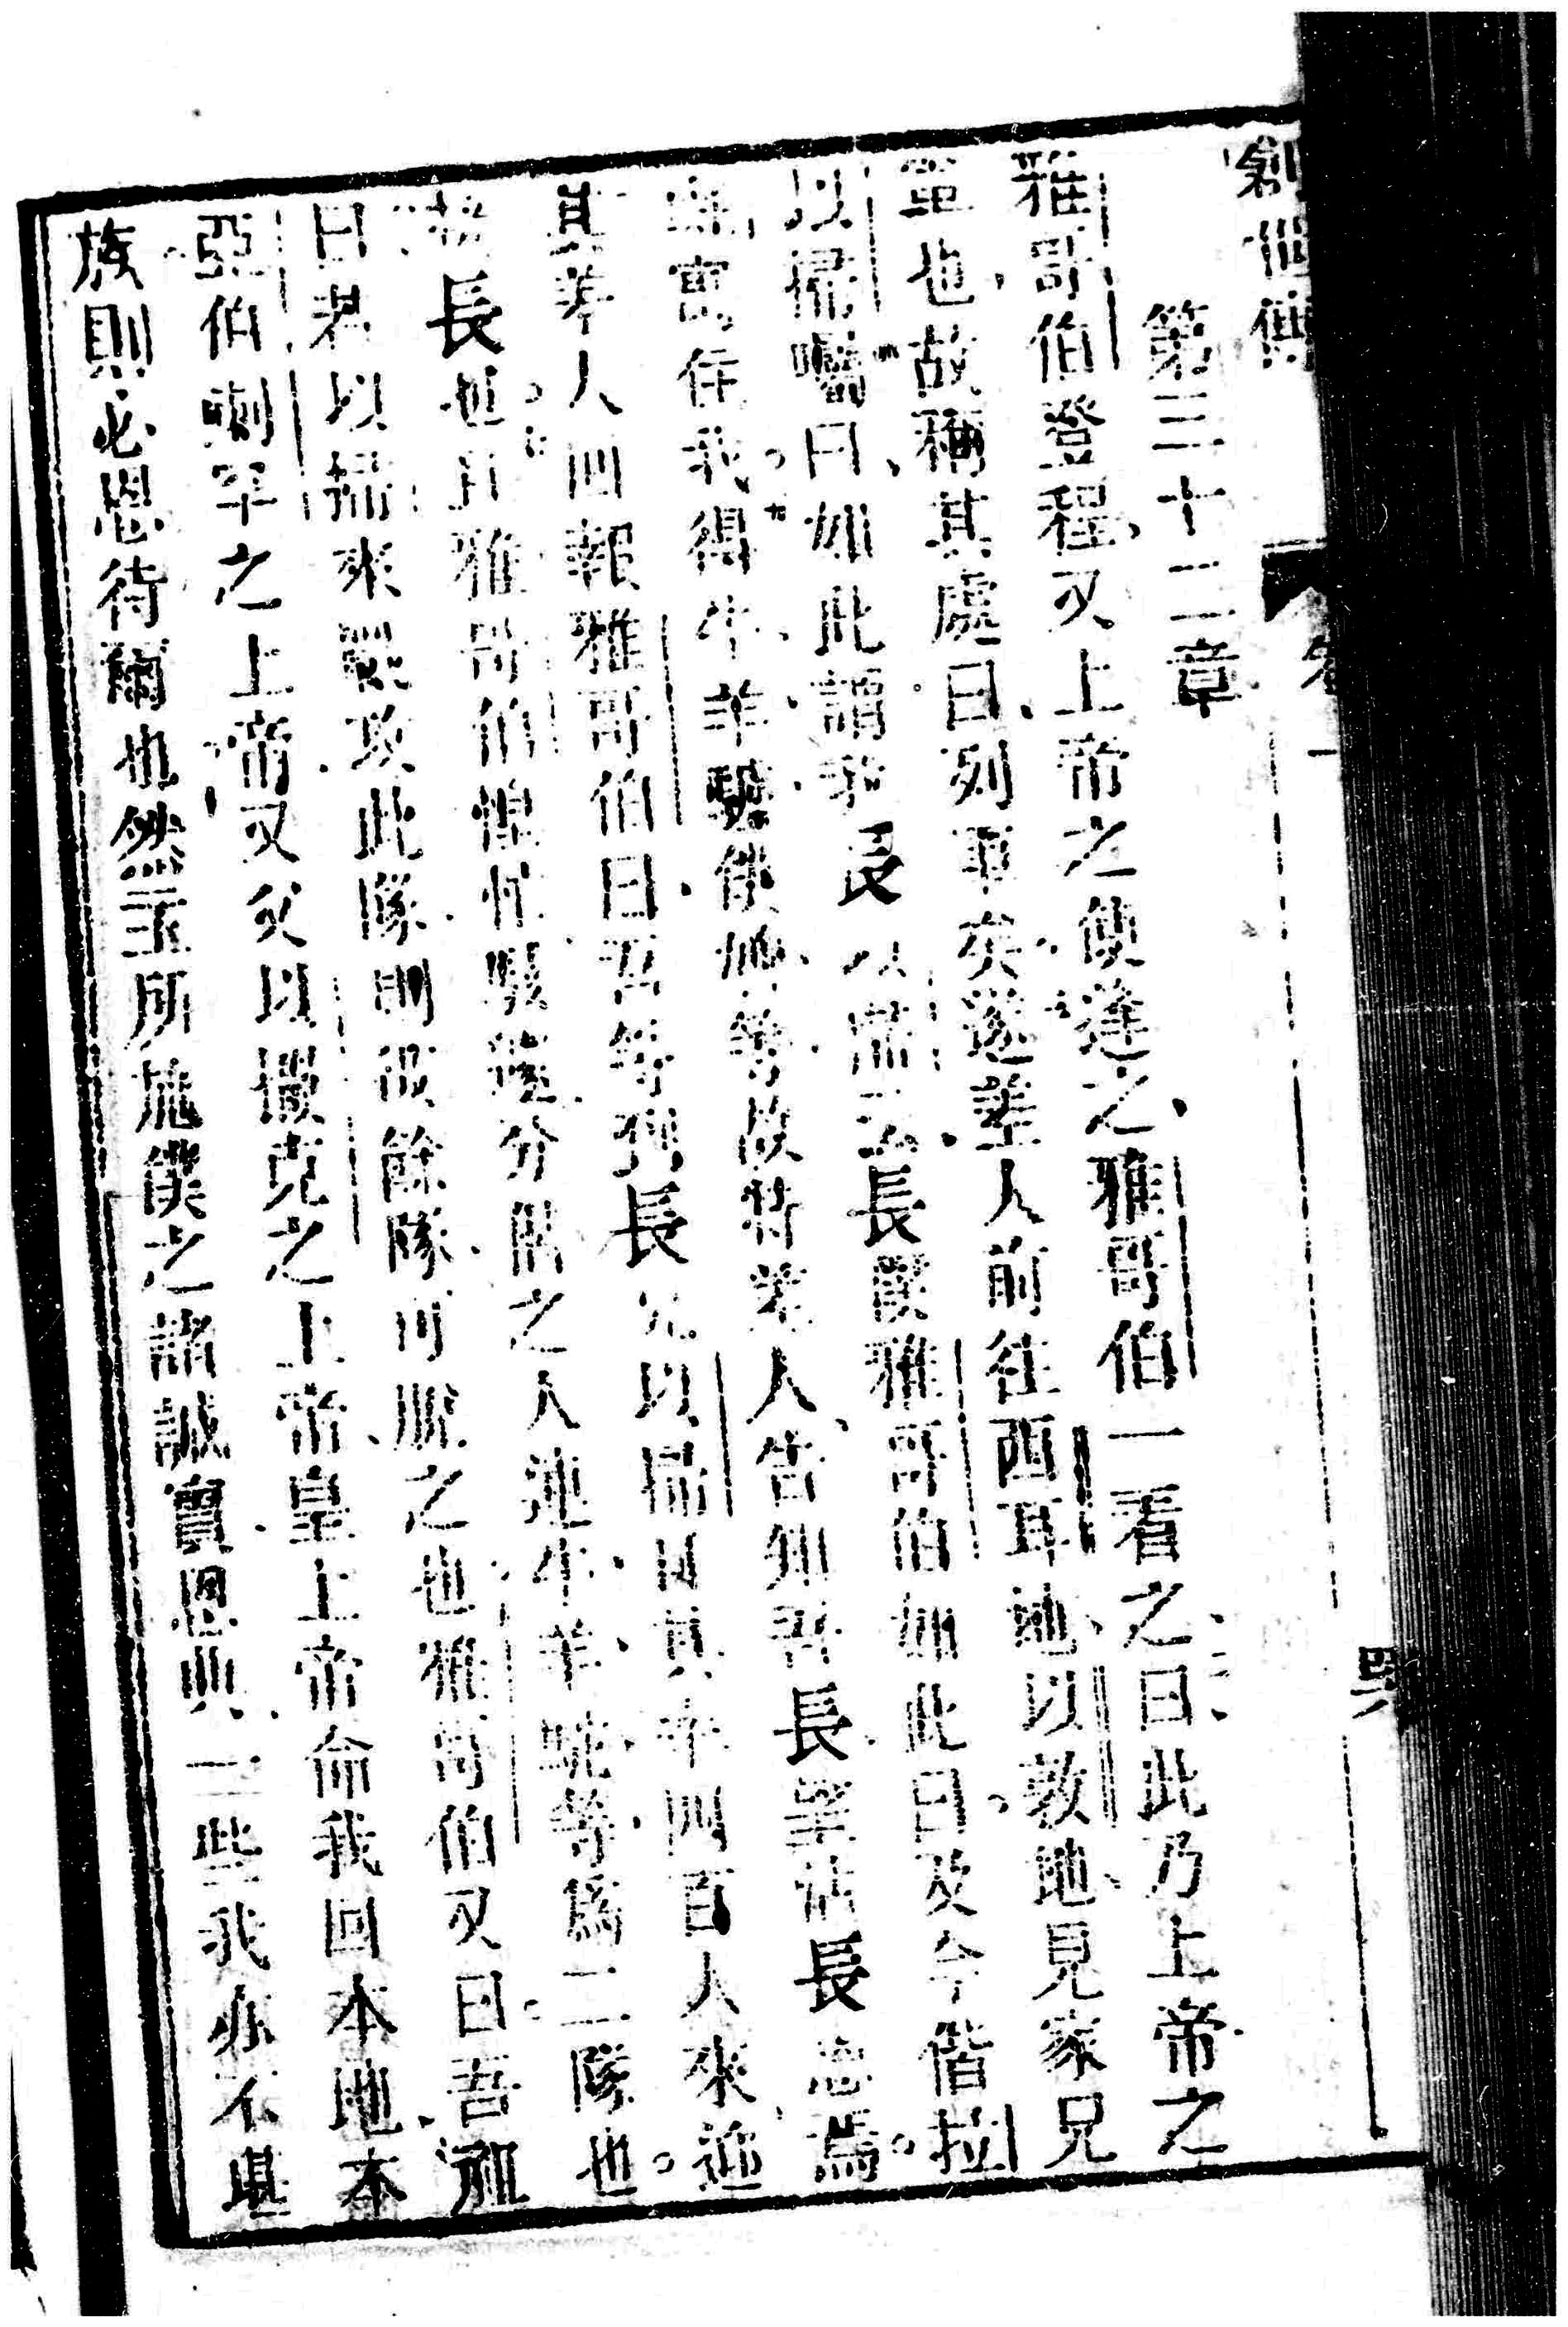 創世傳
卷一
四八
第三十二章
雅哥伯登程、又上帝之使逢之、雅哥伯一看之曰此乃上帝之
軍也、故稱其處曰、列軍矣。遂差人前往西耳地、以敦地、見家兄
以掃囑曰、如此謂吾長以掃云、長僕雅哥伯如此曰。及今偕拉
寓在我得牛、羊、驢、僕婢等、故特差人告知吾長、望沾長恩焉。
其差人回報雅哥伯曰、吾等到長兄以掃且其率四百人來迎
長也。雅哥伯慌忙駭遂分偕之人連牛、羊、駝等、爲二隊也。
曰、若以掃來擊攻此隊、則彼餘隊、可脫之也。雅哥伯又曰。吾祖
亞伯喇罕之上帝、又父以撒克之上帝、皇上帝命我回本地、本
族則必恩待爾也、然主所施僕之諸誠實恩典、一些我亦不堪